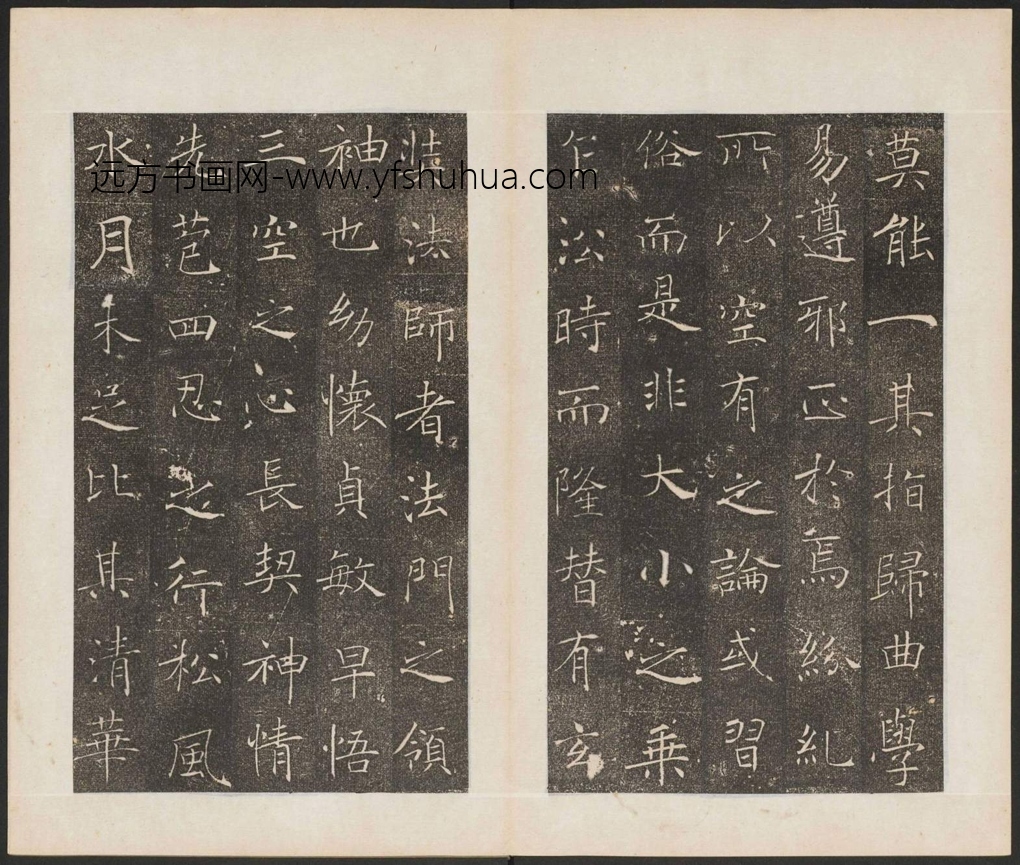 莫能一其指歸曲學
易遵邪正於焉紛糺
所以空有之論或習
俗而是非大小之乗
乍沿時而隆替有玄
奘法師者法門之領
袖也幼懷貞敏早悟
三空之心長契神情
先苞四忍之行松風
水月未足比其清華
远方书画网-www.yfshuhua.com